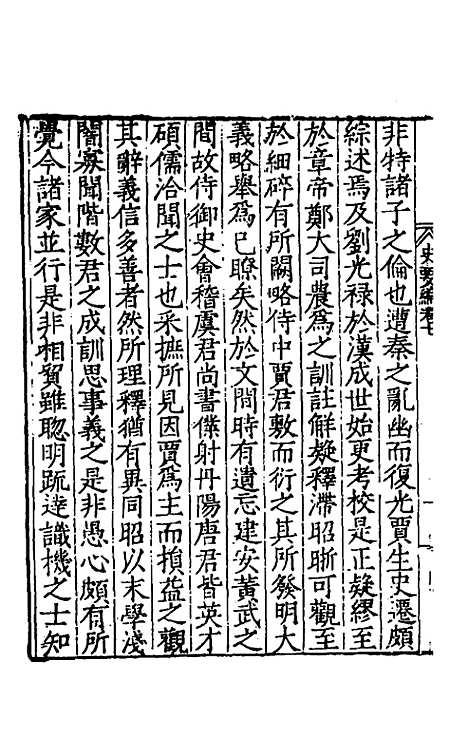 非特諸子之倫也遭秦之亂幽而復光賈生史遷頗
綜述焉及劉光禄於漢成世始更考校是正疑繆至
於章帝鄭大司農爲之訓註解疑釋滯昭晣可觀至
於細碎有所闕略侍中賈君敷而衍之其所發明大
義略舉爲已瞭矣然於文間時有遺忘建安黃武之
間故侍御史會稽虞君尚書僕射丹陽唐君皆英才
碩儒洽聞之士也采摭所見因賈爲主而損益之觀
其辭義信多善者然所理釋猶有異同昭以末學淺
闇寡聞階數君之成訓思事義之是非愚心頗有所
覺今諸家並行是非相貿雖聦明䟽達識機之士知
史要編卷七